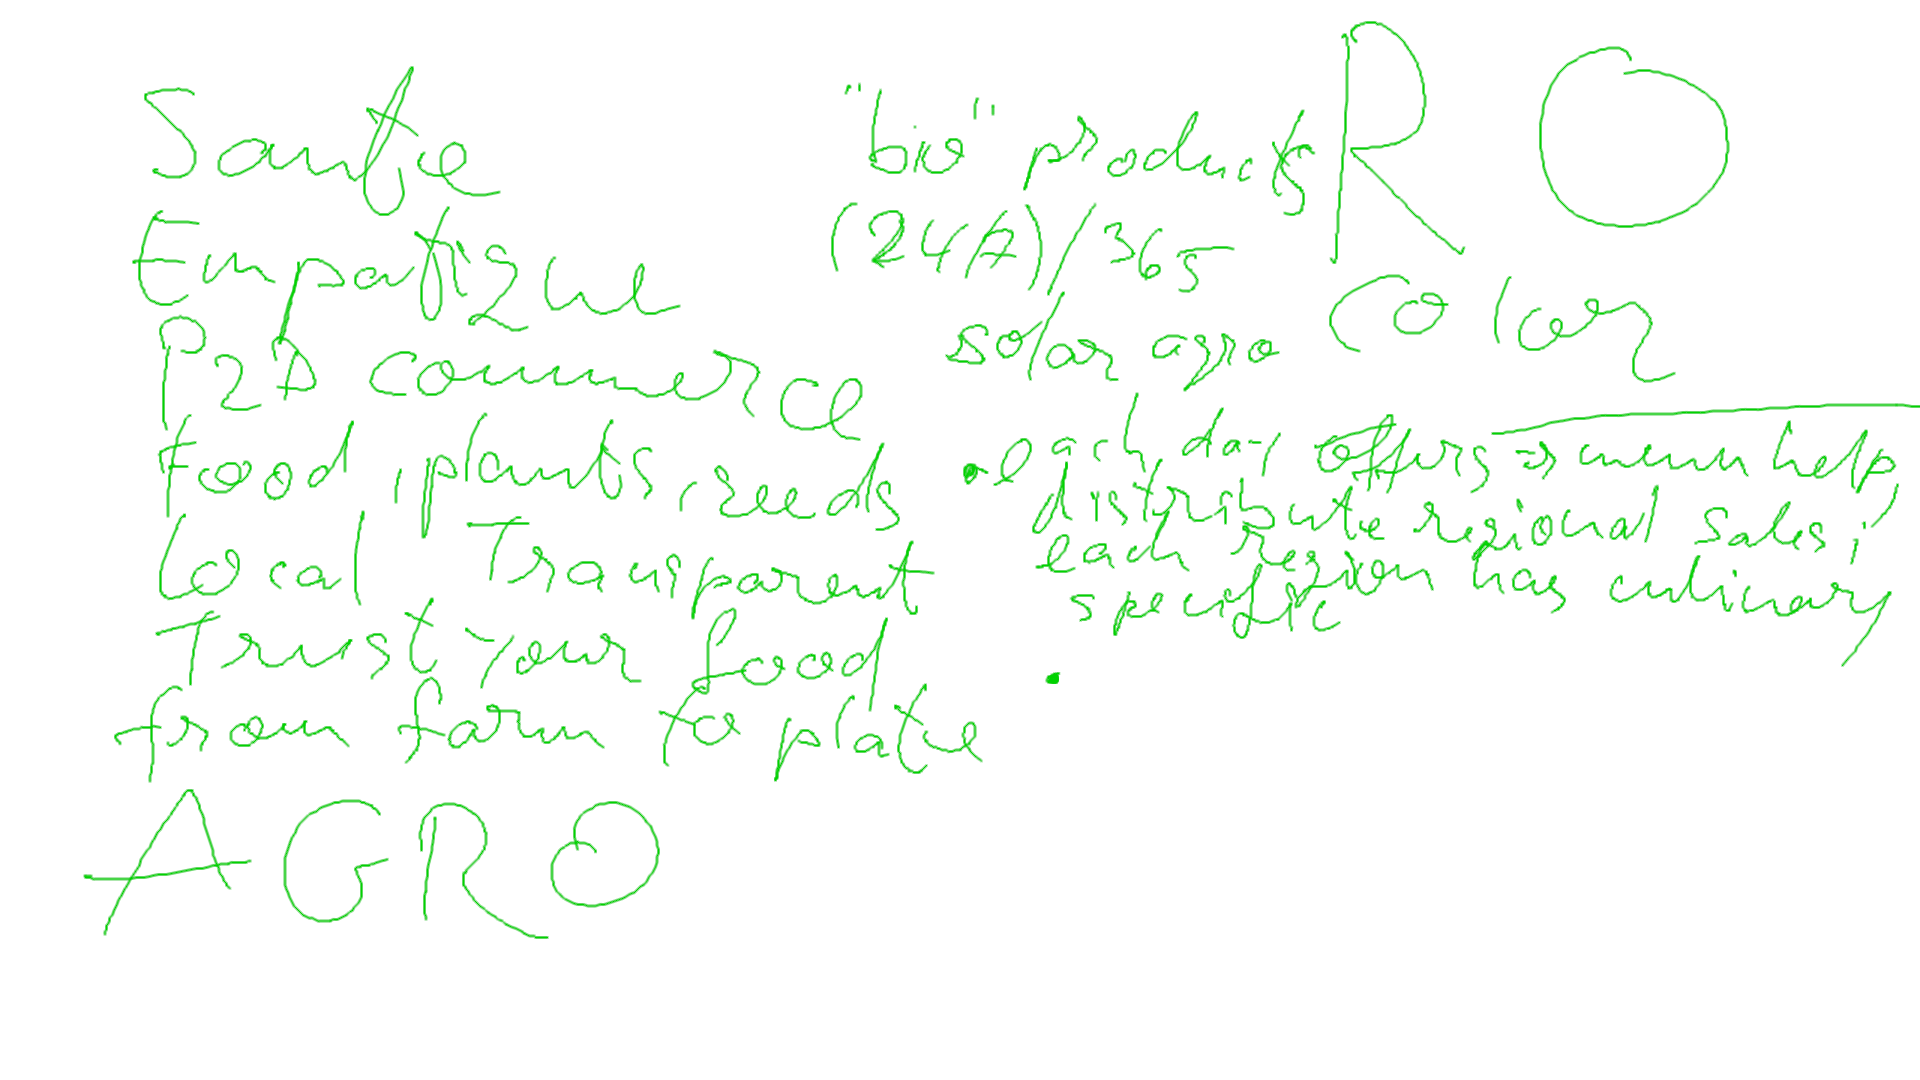 Sante
Empatique
P2P commerce
Food, plants, seeds
Local Transparent
Trust your food
from farm to plate
AGRO
"bio" products
(24/7)/365
solar agro
RO
color
• each day offers => menu help,
distribute regional sales;
each region has culinary
specific
•